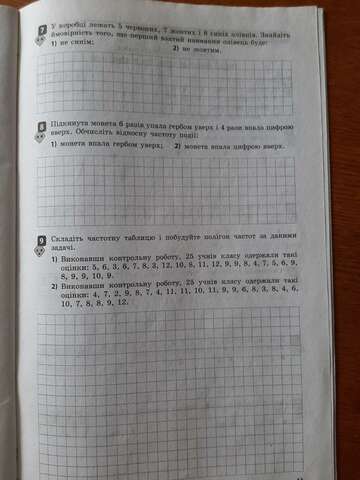 7 У коробці лежать 5 червоних, 7 жовтих і 8 синіх олівців. Знайдіть
ймовірність того, що перший взятий навмання олівець буде:
1) не синім; 2) не жовтим.
8 Підкинута монета 6 разів упала гербом уверх і 4 рази впала цифрою
вверх. Обчисліть відносну частоту події:
1) монета впала гербом уверх; 2) монета впала цифрою вверх.
9 Складіть частотну таблицю і побудуйте полігон частот за даними
задачі.
1) Виконавши контрольну роботу, 25 учнів класу одержали такі
оцінки: 5, 6, 3, 6, 7, 8, 3, 12, 10, 8, 11, 12, 9, 9, 8, 4, 7, 5, 6, 9,
8, 9, 9, 10, 9.
2) Виконавши контрольну роботу, 25 учнів класу одержали такі
оцінки: 4, 7, 2, 9, 8, 7, 4, 11, 11, 10, 11, 9, 9, 6, 8, 3, 8, 4, 6,
10, 7, 8, 8, 9, 12.